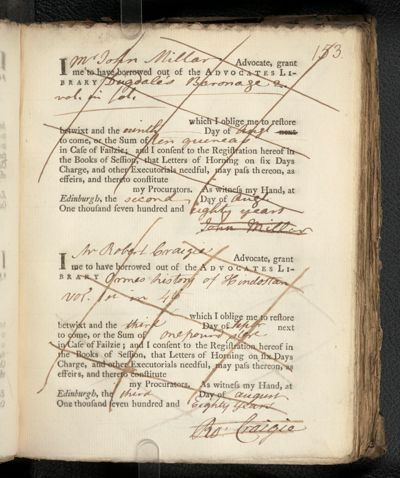 153
I Mr John Millar Advocate, grant
me to have borrowed out of the ADVOCATES LI-
BRARY Dugdales Baronage
vol. in fol.
which I oblige me to restore
betwixt and the ninth Day of Augt next
to come, or the Sum of ten guineas
in Case of Failzie; and I consent to the Registration hereof in
the Books of Session, that Letters of Horning on six Days
Charge, and other Executorials needful, may pass thereon, as
effeirs, and thereto constitute
my Procurators. As witness my Hand, at
Edinburgh, the second Day of Augt
One thousand seven hundred and eighty years
John Millar
I Mr Robert Craigie Advocate, grant
me to have borrowed out of the ADVOCATES LI-
BRARY Ormes history of Hindostan
vol. in 4to
which I oblige me to restore
betwixt and the third Day of Sepr next
to come, or the Sum of one pound
in Case of Failzie; and I consent to the Registration hereof in
the Books of Session, that Letters of Horning on six Days
Charge, and other Executorials needful, may pass thereon, as
effeirs, and thereto constitute
my Procurators. As witness my Hand, at
Edinburgh, the third Day of august
One thousand seven hundred and eighty years
Ro. Craigie